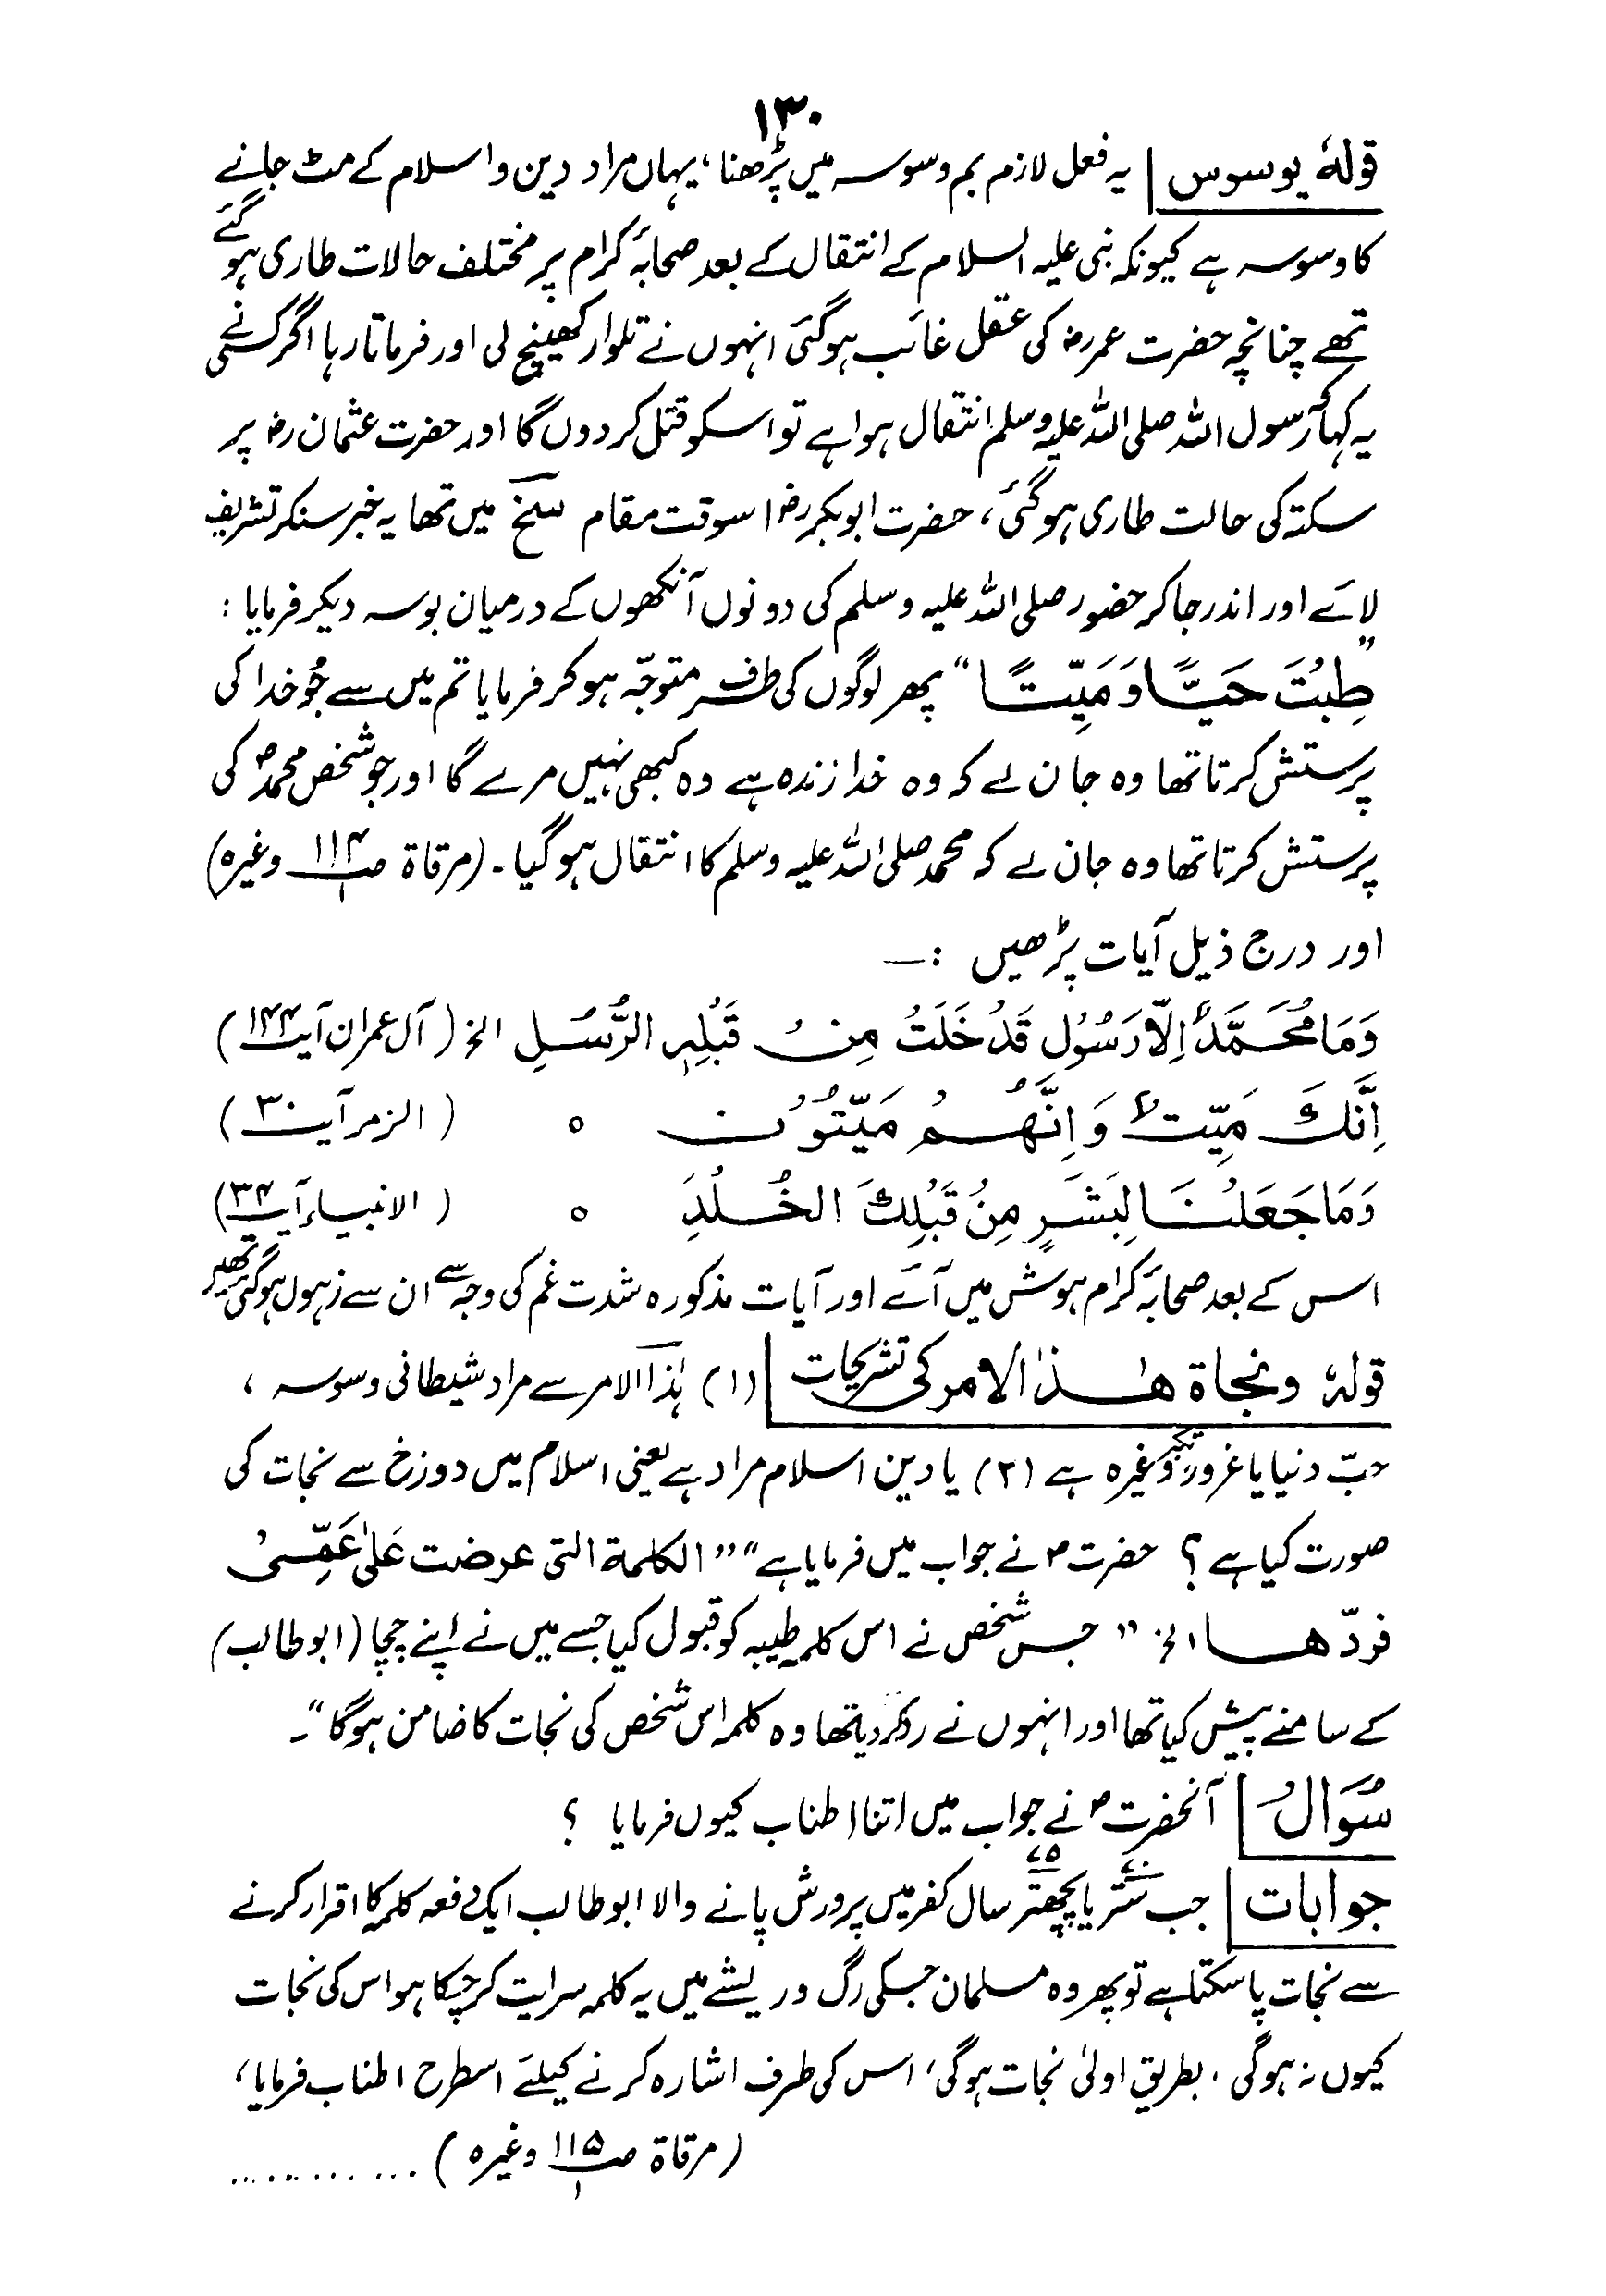 ۱۳۰
قولہٗ یوسوس | یہ فعل لازم بم وسوسہ میں پڑھنا، یہاں مراد دین و اسلام کے مٹ جانے
کا وسوسہ ہے کیونکہ نبی علیہ السلام کے انتقال کے بعد صحابۂ کرام پر مختلف حالات طاری ہو گئے
تھے چنانچہ حضرت عمر رض کی عقل غائب ہوگئی انہوں نے تلوار کھینچ لی اور فرماتا رہا اگر کسی نے
یہ کہا کہ رسول اللہ صلی اللہ علیہ وسلم انتقال ہوا ہے تو اسکو قتل کر دوں گا اور حضرت عثمان رض پر
سکتہ کی حالت طاری ہوگئی، حضرت ابوبکر رض اسوقت مقام سنح میں تھا یہ خبر سنکر تشریف
لائے اور اندر جا کر حضور صلی اللہ علیہ وسلم کی دونوں آنکھوں کے درمیان بوسہ دیکر فرمایا :
”طِبْتَ حَیًّا وَ مَیِّتًا“ پھر لوگوں کی طرف متوجّہ ہو کر فرمایا تم میں سے جو خدا کی
پرستش کرتا تھا وہ جان لے کہ وہ خدا زندہ ہے وہ کبھی نہیں مرے گا اور جو شخص محمد ﷺ کی
پرستش کرتا تھا وہ جان لے کہ محمد صلی اللہ علیہ وسلم کا انتقال ہوگیا۔ (مرقاۃ ص ۱۱۴/۱ وغیرہ)
اور درج ذیل آیات پڑھیں :—
وَمَا مُحَمَّدٌ اِلَّا رَسُوْل قَدْ خَلَتْ مِنْ قَبْلِہِ الرُّسُلِ الخ (آل عمران آیت ۱۴۴)
اِنَّکَ مَیِّتٌ وَ اِنَّهُمْ مَیِّتُوْنَ ○ (الزمر آیت ۳۰)
وَمَا جَعَلْنَا لِبَشَرٍ مِنْ قَبْلِكَ الخُلْدَ ○ (الانبیاء آیت ۳۴)
اس کے بعد صحابۂ کرام ہوش میں آئے اور آیات مذکورہ شدت غم کی وجہ سے ان سے زہول ہوگئی تھیں
قولہٗ ونجاۃ ھٰذا الامر کی تشریحات | (۱) ہٰذا الامر سے مراد شیطانی وسوسہ ،
حبّ دنیا یا غرور تکبر وغیرہ ہے (۲) یا دین اسلام مراد ہے یعنی اسلام میں دوزخ سے نجات کی
صورت کیا ہے ؟ حضرت ؐ نے جواب میں فرمایا ہے ”” الکلمۃ التی عرضت عَلیٰ عَمِّیْ
فردّھا الخ ” جس شخص نے اس کلمہ طیبہ کو قبول کیا جسے میں نے اپنے چچا (ابوطالب)
کے سامنے پیش کیا تھا اور انہوں نے رد کر دیا تھا وہ کلمہ اس شخص کی نجات کا ضامن ہوگا“۔
سُوَالْ | آنحضرت ؐ نے جواب میں اتنا اطناب کیوں فرمایا ؟
جوابات | جب ستّر ۷۰ یا پچھتّر ۷۵ سال کفر میں پرورش پانے والا ابوطالب ایک دفعہ کلمہ کا اقرار کرنے
سے نجات پا سکتا ہے تو پھر وہ مسلمان جسکی رگ و ریشے میں یہ کلمہ سرایت کر چکا ہو اس کی نجات
کیوں نہ ہوگی ، بطریق اولیٰ نجات ہوگی، اس کی طرف اشارہ کرنے کیلئے اسطرح اطناب فرمایا،
(مرقاۃ ص ۱۱۵/۱ وغیرہ) ..........